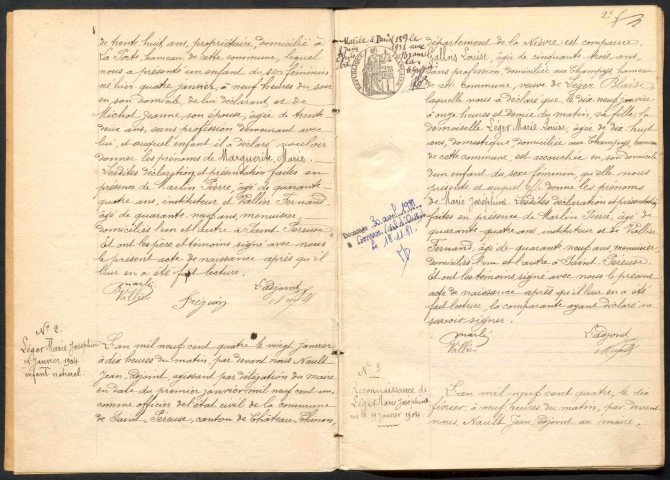 de trente huit ans, propriétaire, domicilié à
La Porte hameau de cette commune, lequel
nous a présenté un enfant du sexe féminin,
né hier quatre janvier, à neuf heures du soir
en son domicile, de lui déclarant et de
Michot Jeanne, son épouse, âgée de trente
deux ans, sans profession, demeurant avec
lui, et auquel enfant il a déclaré vouloir
donner les prénoms de Marguerite, Marie.
Lesdites déclaration et présentation faites en
présence de Martin Pierre, âgé de quarante
quatre ans, instituteur et Vallier Fernand
âgé de quarante neuf ans, menuisier,
domiciliés l'un et l'autre à Saint-Péreuse
Et ont les père et témoins signé avec nous
le présent acte de naissance après qu'il
leur en a été fait lecture.
L'adjoint
N° 2.
Léger Marie Joséphine
Janvier 1904
enfant naturel
L'an mil neuf cent quatre le vingt janvier
à dix heures du matin, par devant nous Nault
Jean, adjoint, agissant par délégation du maire
en date du premier janvier mil neuf cent un,
comme officier de l'état civil de la commune
de Saint-Péreuse, canton de Château-Chinon,
2e
département de la Nièvre est comparue
Vallois Louise, âgée de cinquante trois ans,
sans profession, domiciliée aux Champys hameau
de cette commune, veuve de Léger Blaise
laquelle nous a déclaré que, le dix neuf janvier
à onze heures et demie du matin, sa fille, la
demoiselle Léger Marie Louise, âgée de dix huit
ans, domestique domiciliée aux Champys hameau
de cette commune est accouchée en son domicile
d'un enfant du sexe féminin, qu'elle nous
présente et auquel elle donne les prénoms
de Marie Joséphine. Lesdites déclaration et présentation
faites en présence de Martin Pierre, âgé de
quarante quatre ans, instituteur et de Vallier
Fernand, âgé de quarante neuf ans, menuisier
domiciliés l'un et l'autre à Saint-Péreuse.
Et ont les témoins signé avec nous le présent
acte de naissance après qu'il leur en a été
fait lecture, la comparante ayant déclaré ne
savoir signer.
L'adjoint
N° 3
Reconnaissance de
Léger Marie Joséphine
née le 19 janvier 1904
L'an mil neuf cent quatre, le dix
février, à neuf heures du matin, par devant
nous, Nault Jean adjoint au maire,